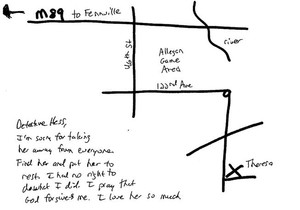 M89 to Fennville
River
46th St
Allegan
Game
Area
122nd Ave
Theresa
Detective Hess,
I'm sorry for taking
her away from everyone.
Find her and put her to
rest. I had no right to
do what I did. I pray that
God forgives me. I love her so much